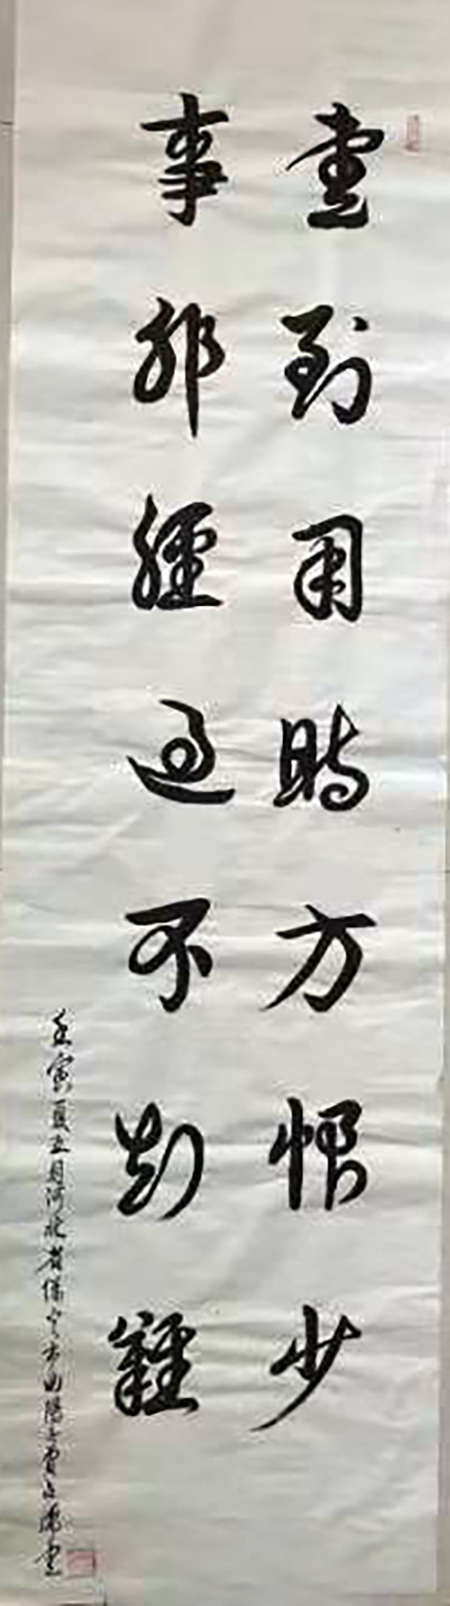 書到用時方恨少
事非經過不知難
壬寅夏五月河北省保定市曲陽書